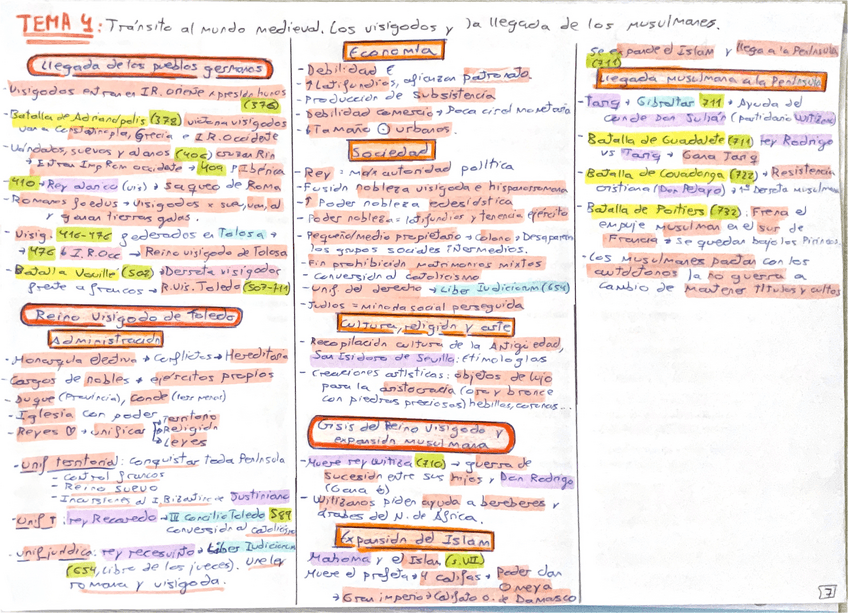 TEMA 4: Tránsito al mundo medieval. Los visigodos y la llegada de los musulmanes.
Llegada de los pueblos germanos
- Visigodos entran en I.R. oriente x presión hunos
(376)
- Batalla de Adrianópolis (378) victoria visigodos
van a Constantinopla, Grecia e I.R. Occidente
- Vándalos, suevos y alanos (406) cruzan Rin
→ Entran Imp Rom occidente → 409 P. Ibérica
- 410 → Rey Alarico (vis) → saqueo de Roma
- Romanos foedus → visigodos x
y ganan tierras galas.
- Visig. 416-476 federados en Tolosa →
→ 476 I.R.Occ → Reino visigodo de Tolosa
- Batalla Vouillé (507) → Derrota visigodos
frente a francos → R.Vis. Toledo (507-711)
Reino Visigodo de Toledo
Administración
- Monarquía electiva → conflictos → Hereditaria
- Cargos de nobles → ejércitos propios
- Duque (Provincia), conde (
- Iglesia con poder
- Reyes → unificar
Territorio
Religión
Leyes
- Unif territorial: conquistar toda Península
- Control francos
- Reino suevo
- Incursiones al I. Bizantino de Justiniano
- Unif : rey Recaredo → III Concilio Toledo 589
conversión al catolicismo
- Unif jurídica: rey recesvinto → Liber Iudiciorum
(654, libro de los jueces). Une ley
romana y visigoda.
Economía
- Debilidad E
- ↑ Latifundios, afianzan patronato.
- Producción de subsistencia
- Debilidad comercio → Poca circl monetaria
- ↓ Tamaño urbanos.
Sociedad
- Rey = max autoridad política
- Fusión nobleza visigoda e hispanorromana
- ↑ Poder nobleza eclesiástica
- Poder nobleza = latifundios y tenencia ejército
- Pequeño/medio propietario → Colono → Desaparen
los grupos sociales intermedios.
- Fin prohibición matrimonios mixtos
- Conversión al catolicismo
- Unif del derecho → Liber Iudiciorum (654)
- Judíos = minoría social perseguida
Cultura, religión y arte
- Recopilación cultura de la Antigüedad,
San Isidoro de Sevilla: Etimologías
- Creaciones artísticas: objetos de lujo
para la aristocracia (oro y bronce
con piedras preciosas) hebillas, coronas...
Crisis del Reino Visigodo y
expansión musulmana
- Muere rey Witiza (710) → guerra de
sucesión entre sus hijos y Don Rodrigo
(Gana
- Witizanos piden ayuda a bereberes y
árabes del N. de África.
Expansión del Islam
Mahoma y el Islam (s.VII)
Muere el profeta → 4 califas → Poder clan
Omeya
→ Gran imperio → Califato O. de Damasco
Se expande el Islam y llega a la Península
(711)
Llegada musulmana a la Península
- Tariq → Gibraltar 711 → Ayuda del
conde Don Julián (partidario Witiza)
- Batalla de Guadalete (711) rey Rodrigo
vs Tariq → Gana Tariq
- Batalla de Covadonga (722) → Resistencia
cristiana (Don Pelayo) → 1ª Derrota musulmana
- Batalla de Poitiers (732). Frena el
empuje musulman en el sur de
Francia → Se quedan bajo los Pirineos.
- Los musulmanes pactan con los
autóctonos la no guerra a
cambio de mantener títulos y cultos
7